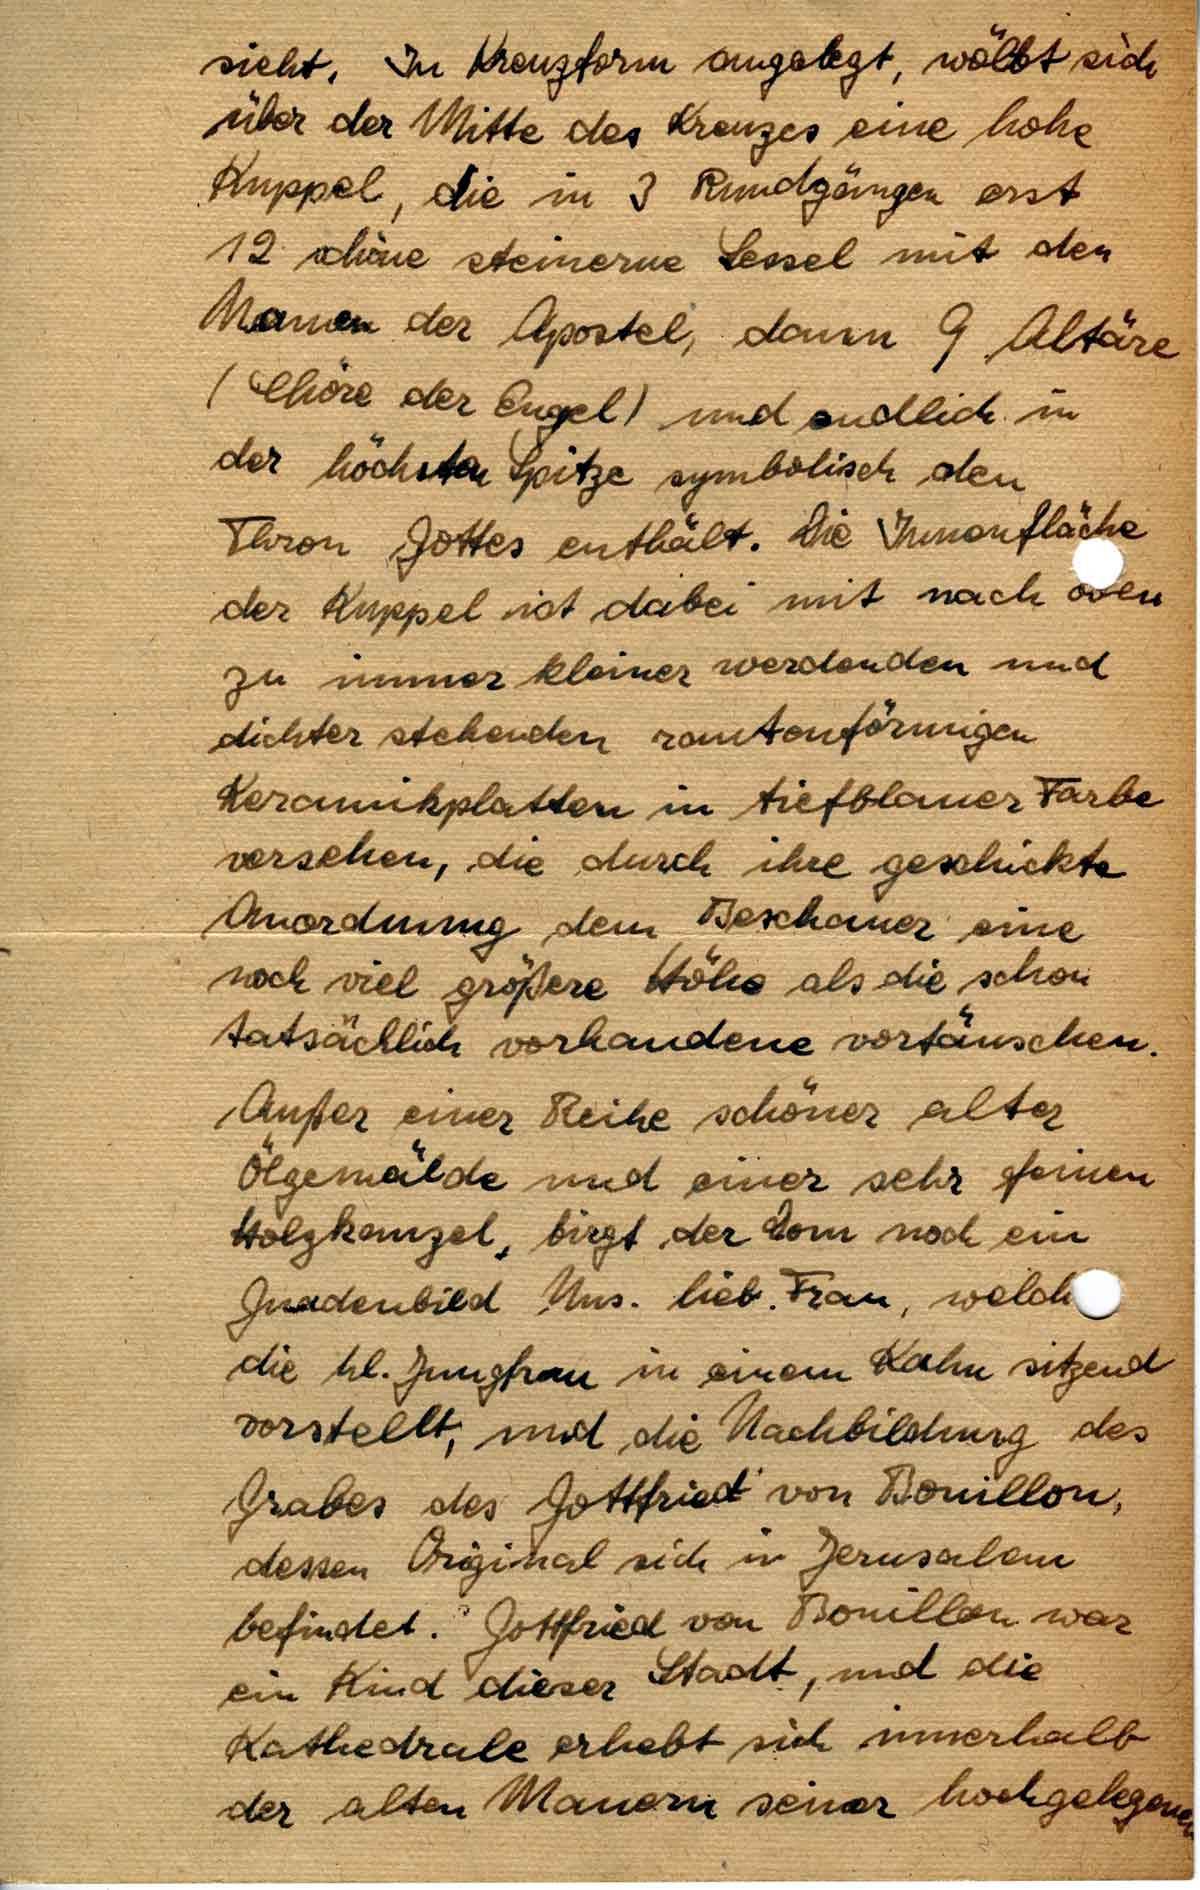 sieht. In Kreuzform angelegt, wölbt sich
über der Mitte des Kreuzes eine hohe
Kuppel, die in 3 Rundgängen erst
12 schöne steinerne Sessel mit den
Namen der Apostel, dann 9 Altäre
(Chöre der Engel) und endlich in
der höchsten Spitze symbolisch den
Thron Gottes enthält. Die Innenfläche
der Kuppel ist dabei mit nach oben
zu immer kleiner werdenden und
dichter stehenden rautenförmigen
Keramikplatten in tiefblauer Farbe
versehen, die durch ihre geschickte
Anordnung dem Beschauer eine
noch viel größere Höhe als die schon
tatsächlich vorhandene vortäuschen.
Außer einer Reihe schöner alter
Ölgemälde und einer sehr feinen
Holzkanzel, birgt der Dom noch ein
Gnadenbild Uns. lieb. Frau, welch
die hl. Jungfrau in einem Kahn sitzend
vorstellt, und die Nachbildung des
Grabes des Gottfried von Bouillon,
dessen Original sich in Jerusalem
befindet. Gottfried von Bouillon war
ein Kind dieser Stadt, und die
Kathedrale erhebt sich innerhalb
der alten Mauern seiner hochgelegenen